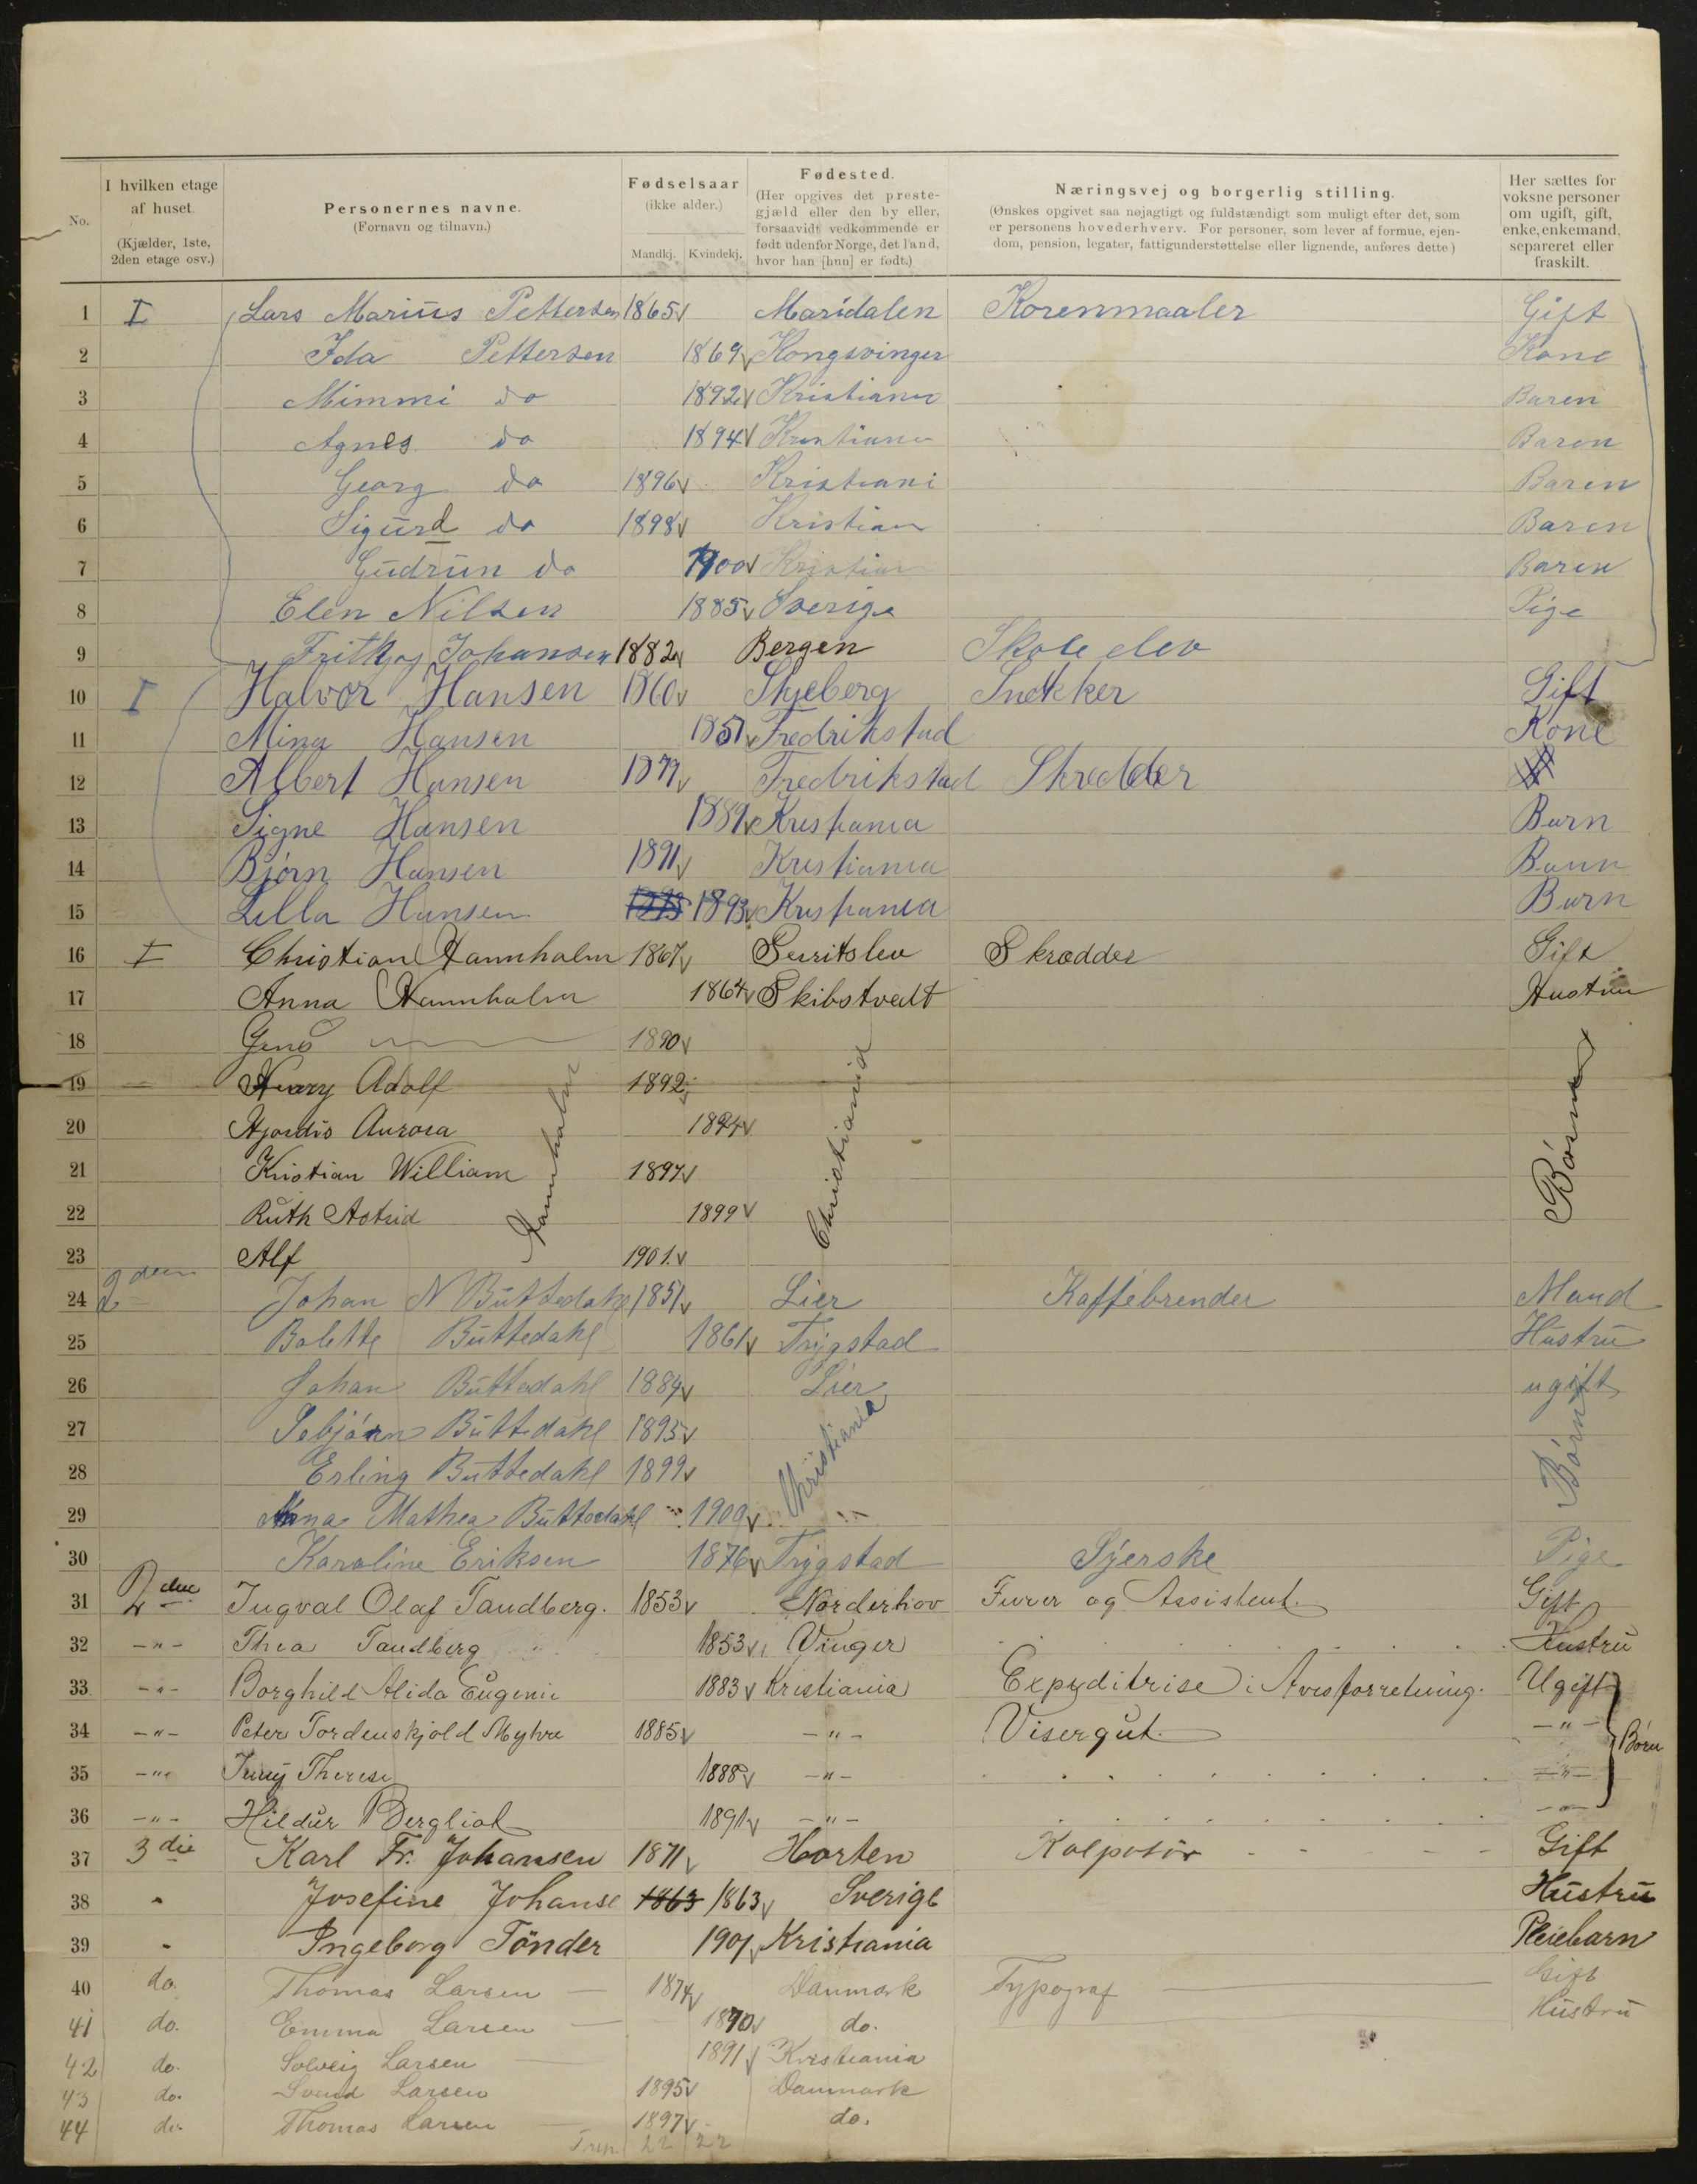 No.
I hvilken etage af huset. (Kjælder, 1ste, 2den etage osv.)
Personernes navne. (Fornavn og tilnavn.)
Fødselsaar (ikke alder.) Mandkj. Kvindekj.
Fødested. (Her opgives det prestegjæld eller den by eller, forsaavidt vedkommende er født udenfor Norge, det land, hvor han [hun] er født.)
Næringsvej og borgerlig stilling. (Ønskes opgivet saa nøjagtigt og fuldstændigt som muligt efter det, som er personens hovederhverv. For personer, som lever af formue, ejendom, pension, legater, fattigunderstøttelse eller lignende, anføres dette.)
Her sættes for voksne personer om ugift, gift, enke, enkemand, separeret eller fraskilt.
1 I Lars Marius Pettersen 1865 Maridalen Korenmaaler Gift
2 Ida Pettersen 1869 Kongsvinger Kone
3 Mimmi do 1892 Kristiania Baren
4 Agnes do 1894 Kristiania Baren
5 Georg do 1896 Kristiani Baren
6 Sigurd do 1898 Kristian Baren
7 Gudrun do 1900 Kristian Baren
8 Elen Nilsen 1885 Sverige Pige
9 Frithjof Johansen 1882 Bergen Skole elev
10 I Halvor Hansen 1860 Skjeberg Snekker Gift
11 Mina Hansen 1851 Fredrikstad Kone
12 Albert Hansen 1877 Fredrikstad Skredder
13 Signe Hansen 1889 Kristiania Barn
14 Bjørn Hansen 1891 Kristiania Barn
15 Lilla Hansen 1893 Kristiania Barn
16 I Christian Hamnholm 1867 Serritslev Skrædder Gift
17 Anna Hamnholm 1864 Skibstvedt Hustru
18 Jens 1890
19 Harry Adolf 1892
20 Hjørdis Aurora 1894
21 Kristian William 1897
22 Ruth Astrid 1899
23 Alf 1901
Hamnholm
Christiania
Børn
24 2den Johan N Buttedahl 1851 Lier Kaffebrender Mand
25 Bolette Buttedahl 1861 Trygstad Hustru
26 Johan Buttedahl 1884 Lier ugift
27 Buttedahl 1895
28 Erling Buttedahl 1899
29 Anna Mathea Buttedahl 1900
Christiania
Børn
30 Karoline Eriksen 1876 Trygstad Syerske Pige
31 2den Ingval Olaf Tandberg. 1853 Norderhov Furer og Assistent. Gift
32 -"- Thea Tandberg 1853 Vinger Hustru
33 -"- Borghild Alida Eugenie 1883 Kristiania Expeditrise i Avisforretning. Ugift
34 -"- Peter Tordenskjold Myhre 1885 -"- Visergut. -"-
35 -"- Jenny Therese 1888 -"- -"-
36 -"- Hildur Bergliot 1891 -"- -"-
Børn
37 3die Karl Fr. Johansen 1871 Horten Kolpotør Gift
38 " Josefine Johanse 1863 1863 Sverige Hustru
39 " Ingeborg Tönder 1901 Kristiania Pleiebarn
40 do. Thomas Larsen 1874 Danmark Typograf Gift
41 do. Emma Larsen 1870 do. Hustru
42 do. Solveig Larsen 1891 Kristiania
43 do. Svend Larsen 1895 Danmark
44 do. Thomas Larsen 1897 do.
22 22